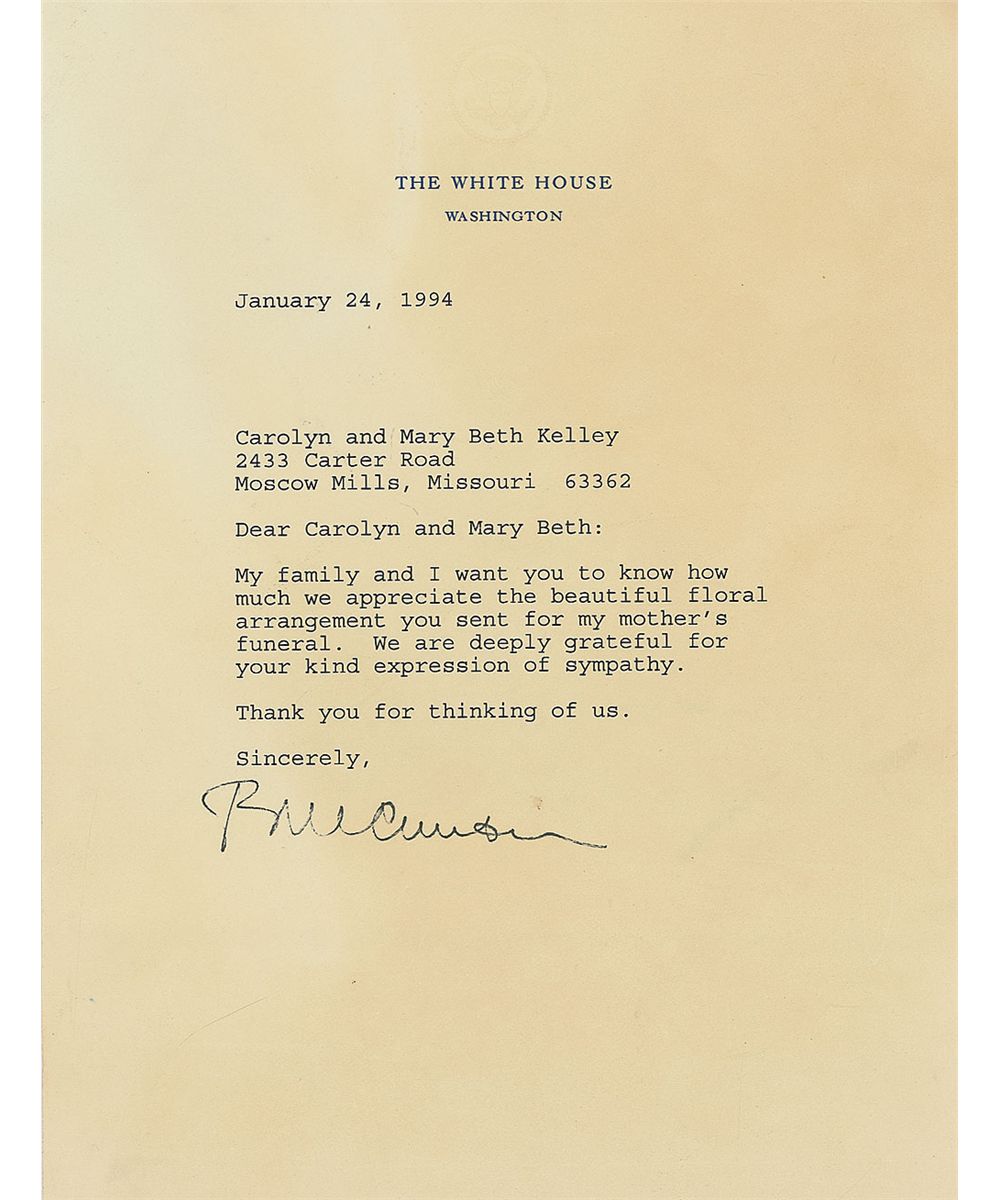 THE WHITE HOUSE
WASHINGTON
January 24, 1994
Carolyn and Mary Beth Kelley
2433 Carter Road
Moscow Mills, Missouri  63362
Dear Carolyn and Mary Beth:
My family and I want you to know how
much we appreciate the beautiful floral
arrangement you sent for my mother's
funeral.  We are deeply grateful for
your kind expression of sympathy.
Thank you for thinking of us.
Sincerely,
Bill Clinton